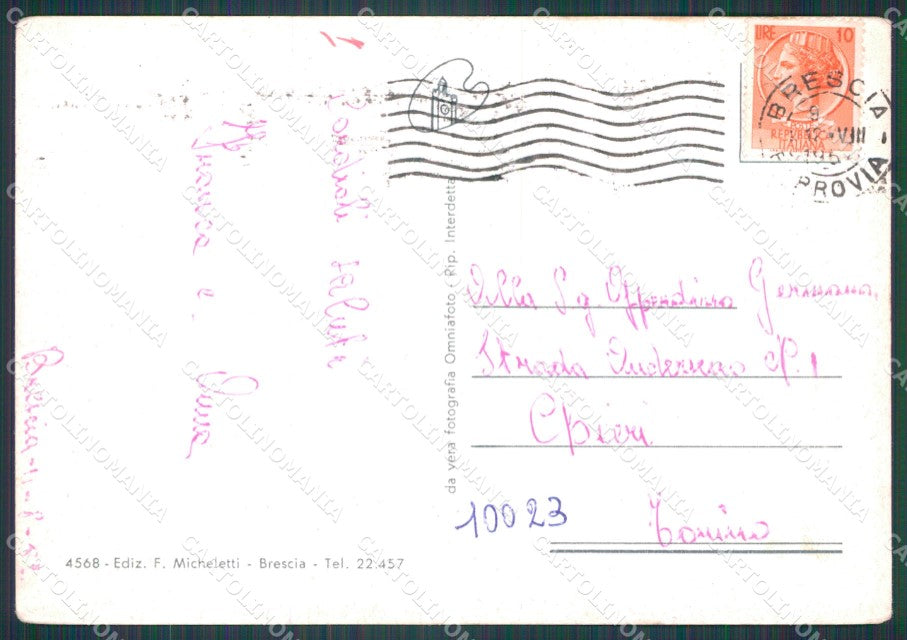 1
Cordiali saluti
Franca e
Brescia - 11 - 8 -
da vera fotografia Omniafoto - Rip. Interdetta
4568 - Ediz. F. Micheletti - Brescia - Tel. 22.457
LIRE 10
REPUBBLICA
ITALIANA
BRESCIA
VIII
Alla Sg Appendino Germana
Strada Andezeno N. 1
Chieri
10023
Torino
CARTOLINOMANIA